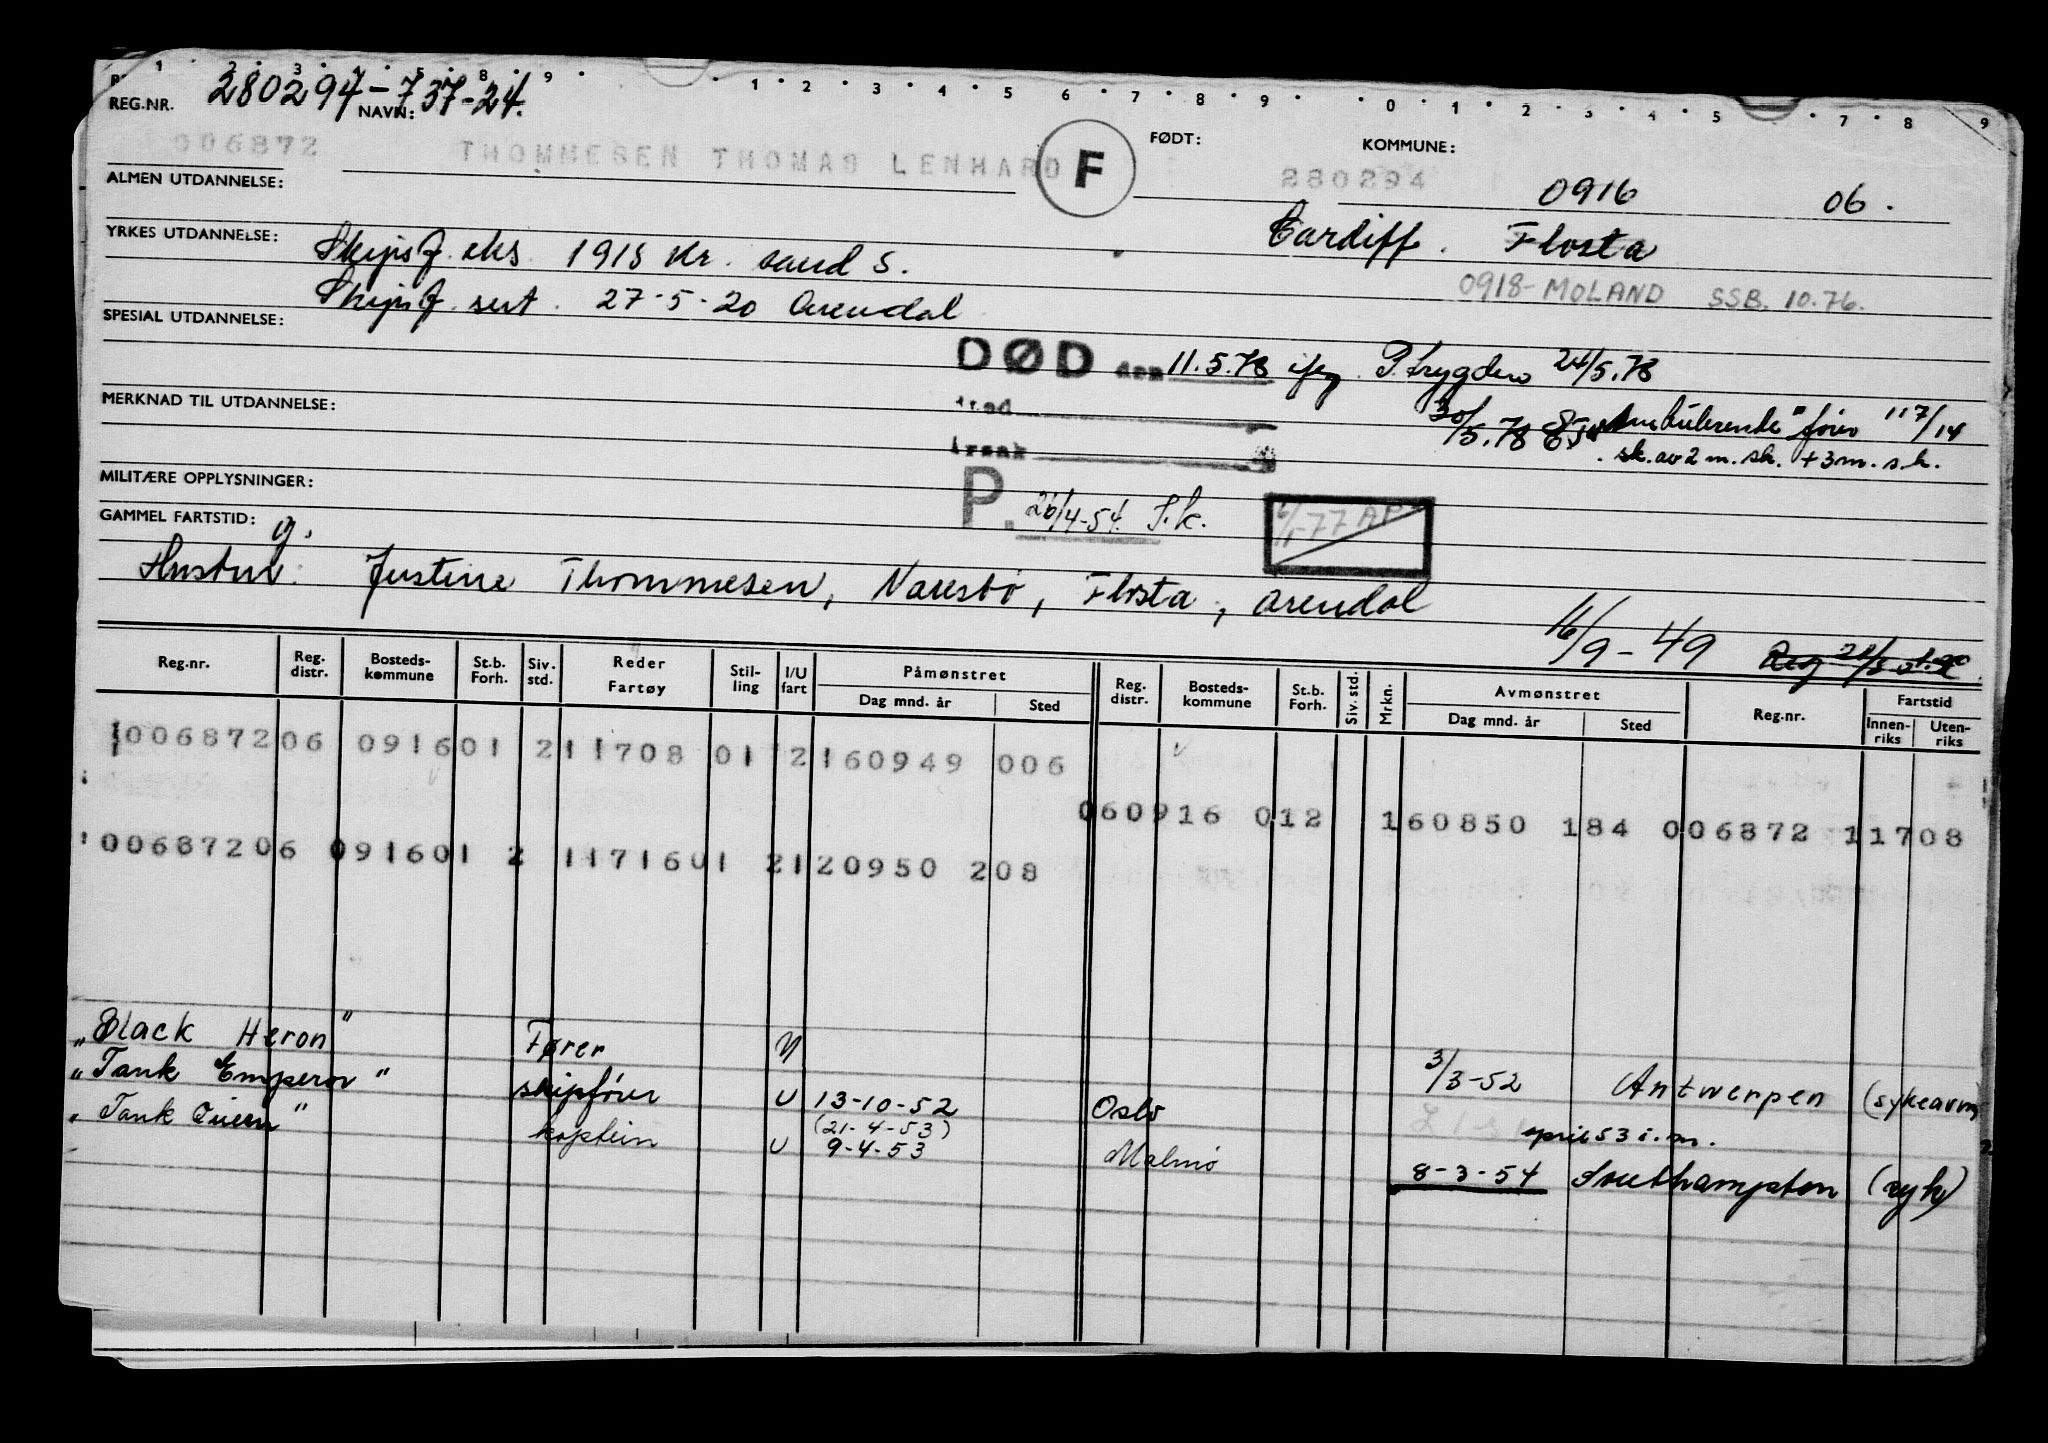 1 2 3 8 9 1 2 3 4 5 6 7 8 9 0 1 2 3 4 5 7 8 9
REG.NR. 280294-73724. NAVN: FØDT: KOMMUNE:
006872 THOMMESEN THOMAS LENHARD F 280294 0916 06.
ALMEN UTDANNELSE:
Cardiff. Flosta
YRKES UTDANNELSE: Skipsf. eks 1918 Kr. sand S.
0918-MOLAND SSB. 10.76.
Skipsf. sert. 27-5-20 Arendal
SPESIAL UTDANNELSE:
DØD den 11.5.78 ifg. P.trygden 24/5.78
MERKNAD TIL UTDANNELSE: sted
30/5.78 "Ambulerende" fører 117/14
årsak sk. av 2 m. sk. + 3 m. s.k.
MILITÆRE OPPLYSNINGER:
P. 26/4-54. S.k. 6/1-77 AP
GAMMEL FARTSTID: g.
Hustru: Justine Thommesen, Narestø, Flosta, Arendal
16/9-49 Reg
Reg.nr. Reg. distr. Bosteds- kommune St.b. Forh. Siv. std. Reder Fartøy Stil- ling I/U fart Påmønstret Dag mnd. år Sted Reg. distr. Bosteds- kommune St.b. Forh. Siv. std. Mrkn. Avmønstret Dag mnd. år Sted Reg.nr. Fartstid Innen- riks Uten- riks
00687206 091601 211708 01 2160949 006
060916 012 160850 184 006872 11708
00687206 091601 2 1171601 2120950 208
"Black Heron" Fører U 3/3-52 Antwerpen (sykeavm)
"Tank Emperor" skipsfører U 13-10-52 Oslo april 53 i.m.
(21-4-53)
"Tank Queen" kaptein U 9-4-53 Malmø 8-3-54 Southampton (syk)